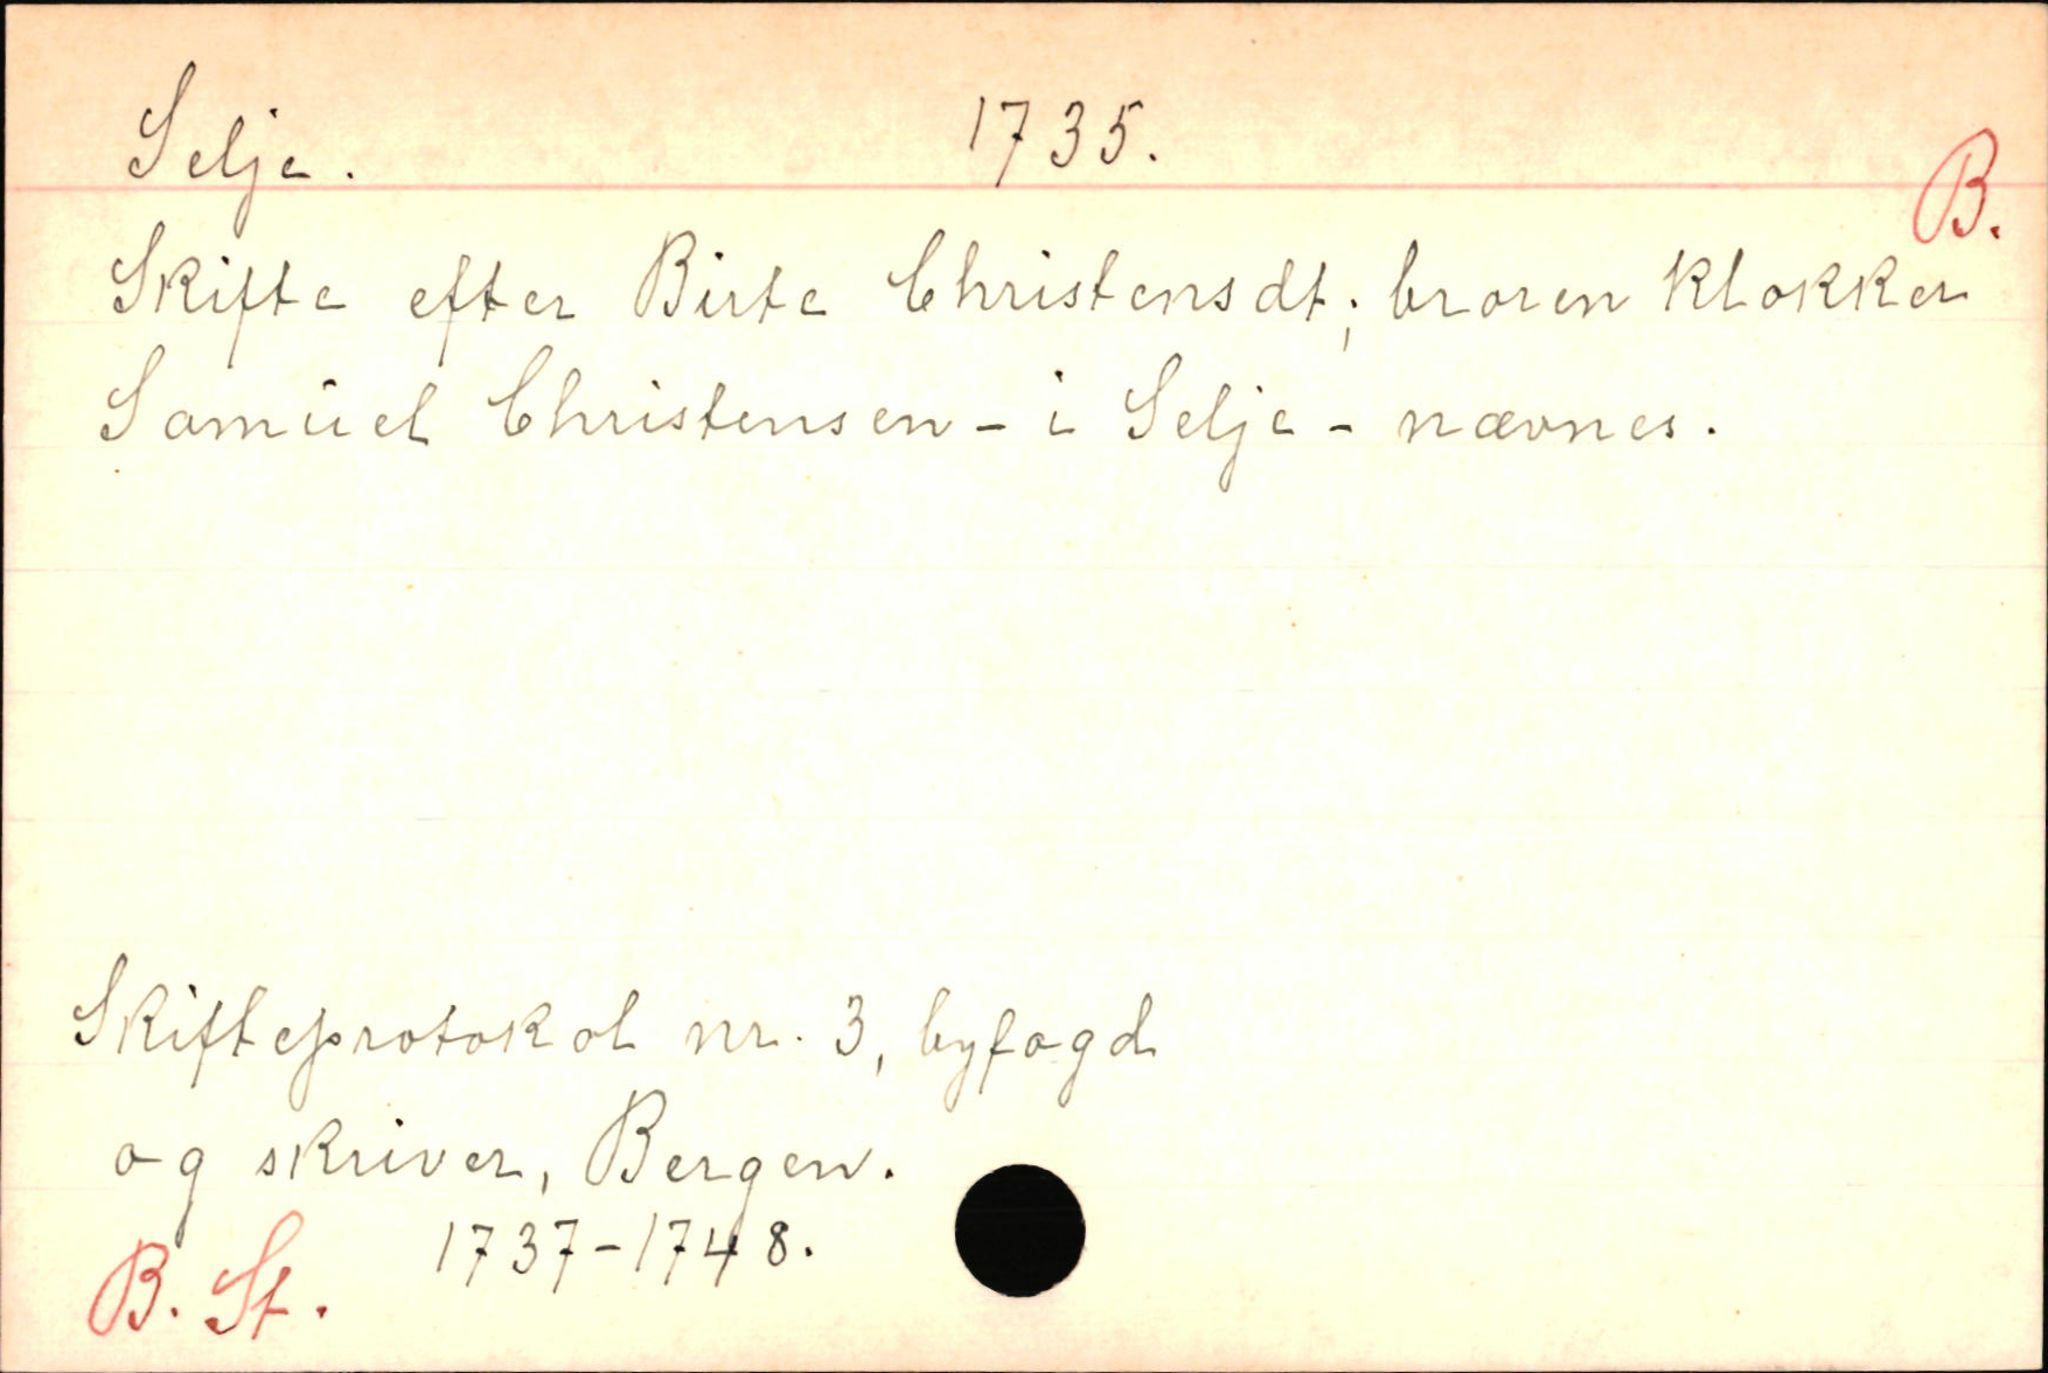 Selje. 1735.
B.
Skifte efter Birte Christensdt; broren klokker
Samuel Christensen - i Selje - nævnes.
Skifteprotokol nr. 3, byfogd
og skriver, Bergen.
1737-1748.
B. St.